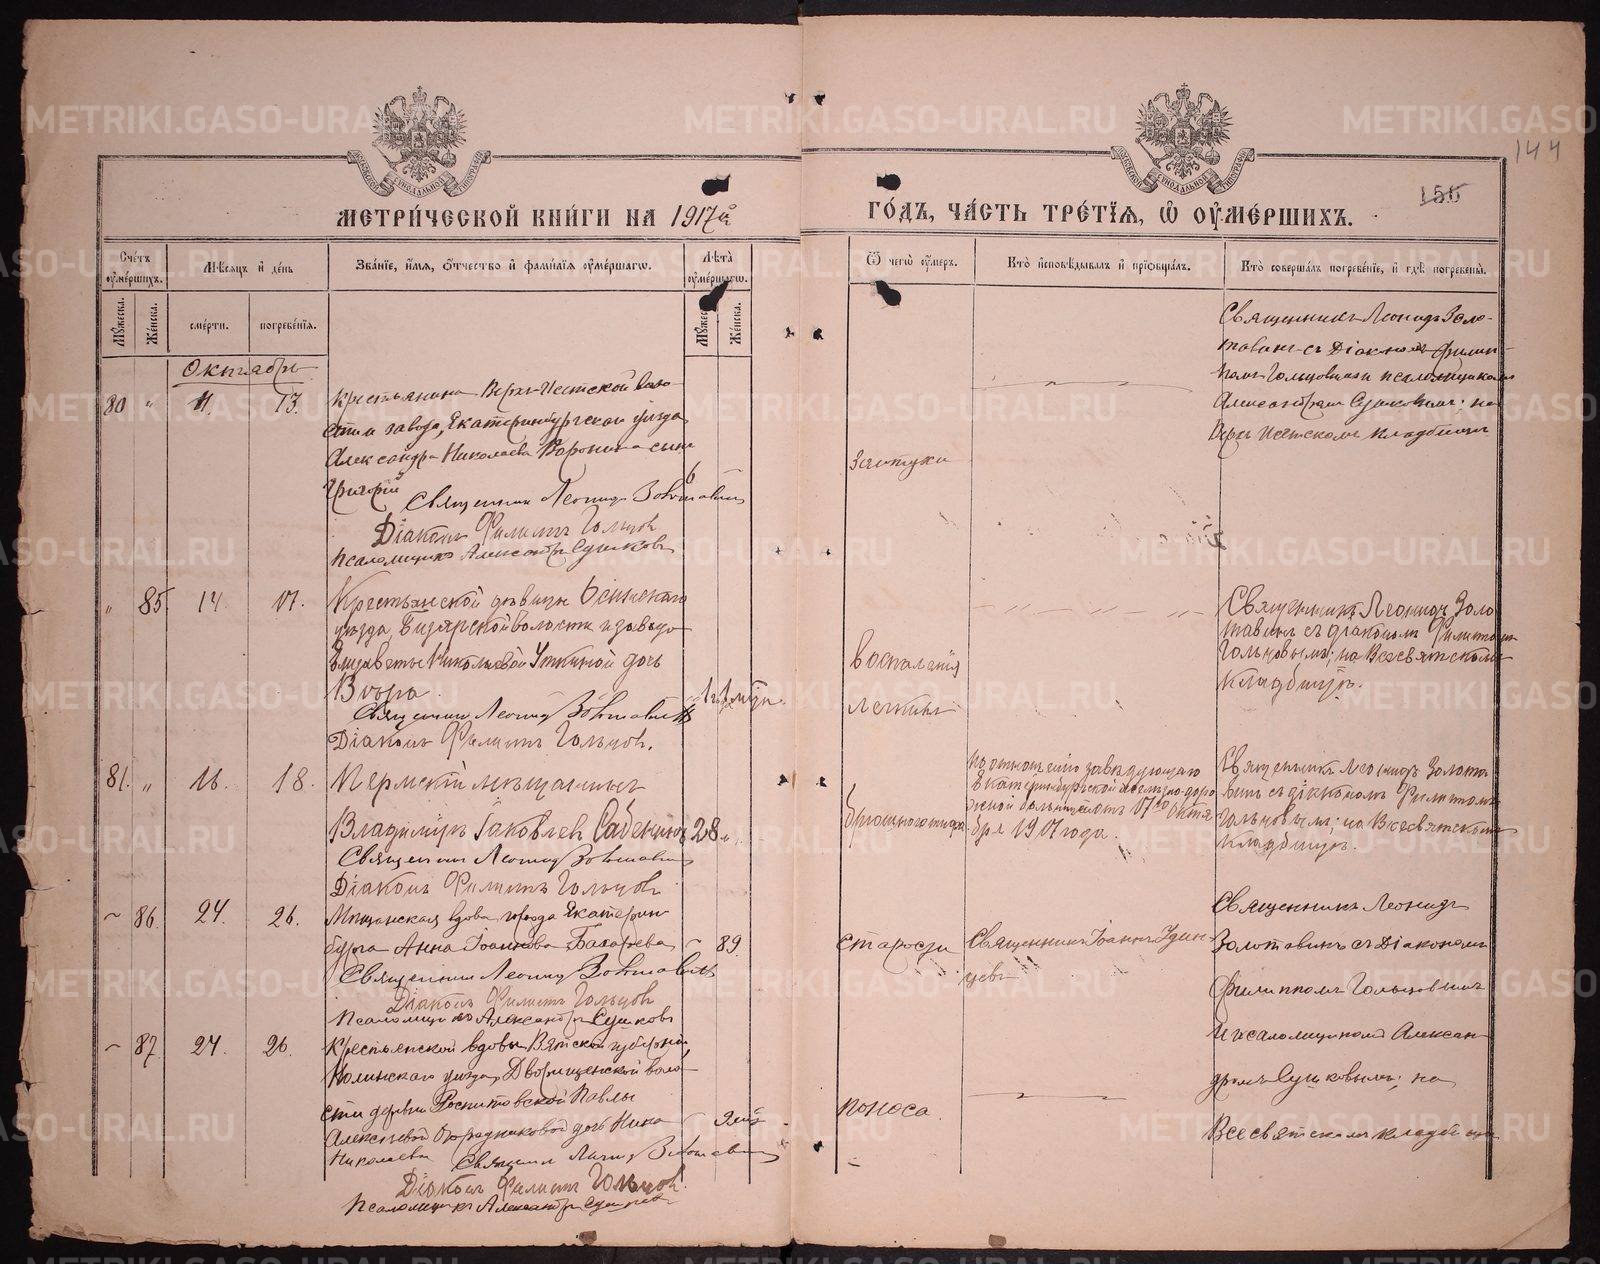 144
155
МЕТРИ́ЧЕСКОЙ КНИ́ГИ НА 1917й
ГО́ДЪ, ЧА́СТЬ ТРЕ́ТЇѦ, Ѽ ОУ҆МЕ́РШИХЪ.
Сче́тъ оу҆ме́ршихъ.
Мѣ́сѧцъ и҆ де́нь
Зва́нїе, и҆́мѧ, ѻ҆́тчество и҆ фами́лїѧ оу҆ме́ршагѡ.
Лѣ́та оу҆ме́ршагѡ.
Ѿ чегѡ̀ оу҆́меръ.
Кто̀ и҆сповѣ́дывалъ и҆ прїѡбща́лъ.
Кто̀ соверша́лъ погребе́нїе, и҆ гдѣ̀ погребены̀.
Мꙋ́жеска.
Же́нска.
сме́рти.
погребе́нїѧ.
Же́нска.
Октябрь
80 " 11. 13.
Крестьянина Верх-Исетской воло-
сти и завода, Екатеринбургской уезда
Александра Николаева Воронина сынъ
Григорій 6
Священник Леонид Золотавин
Діаконъ Филиппъ Гольцов
Псаломщикъ Александр Сушковъ
Священникъ Леонидъ Золо-
тавинъ съ Діакономъ Филип-
помъ Гольцовымъ и псаломщикомъ
Александромъ Сушковымъ; на
Верх Исетскомъ кладбищѣ
" 85. 14. 17.
Крестьянской девицы Осинскаго
уезда, Бизярской волости и завода
Елизаветы Николаевой Уткиной дочь
Вера.
Священник Леонид Золотавин
Діаконъ Филиппъ Гольцов.
воспаленія
легкихъ
Священникъ Леонидъ Золо
тавинъ съ діакономъ Филиппомъ
Гольцовымъ; на Всесвятскомъ
кладбищѣ.
81. " 16. 18.
Пермскій мещанинъ
Владиміръ Іаковлев 28
Священник Леонид Золотавин
Діаконъ Филиппъ Гольцов
брюшного тифа
по отношенію заведующаго
Екатеринбургской железно-доро
жной больницей отъ 17го Октя
бря 1917 года.
Священникъ Леонидъ Золота
винъ съ діакономъ Филиппомъ
Гольцовымъ; на Всесвятскомъ
кладбищѣ.
~ 86. 24. 26.
Мещанская вдова города Екатерин
бурга Анна Іоаннова ~ 89.
Священник Леонид Золотавинъ
Діаконъ Филиппъ Гольцов
Псаломщикъ Александръ Сушковъ
старости
Священникъ Іоаннъ Удин-
цевъ
Священникъ Леонидъ
Золотавинъ съ Діакономъ
Филиппомъ Гольцовымъ
и псаломщикомъ Алексан
дромъ Сушковымъ; на
Всесвятскомъ кладбище
~ 87. 24. 26.
Крестьянской вдовы Вятской губерніи,
Нолинскаго уезда, Дворищенской воло-
сти деревни Павлы
Алексеевой дочь Нина
Николаева
Священник Леонид Золотавин
Діаконъ Филиппъ Гольцов.
Псаломщикъ Александр Сушков
поноса.